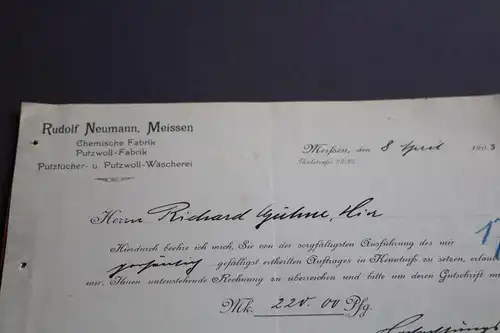 Rudolf Neumann, Meissen
Chemische Fabrik
Putzwoll-Fabrik
Putztücher- u. Putzwoll-Wäscherei
Meissen, den 8 April 1903
Herrn Richard Gühne, Hier
Hierdurch beehre ich mich, Sie von der sorgfältigsten Ausführung des mir
gefälligst ertheilten Auftrages in Kenntniss zu setzen, erlaube
mir, Ihnen untenstehende Rechnung zu überreichen und bitte um deren Gutschrift
Mk. 220.00 Pfg.